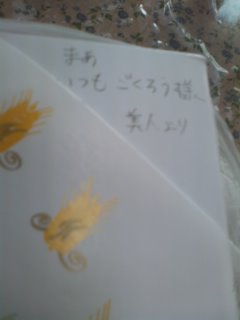 まあ
いつも ごくろう様
美人より